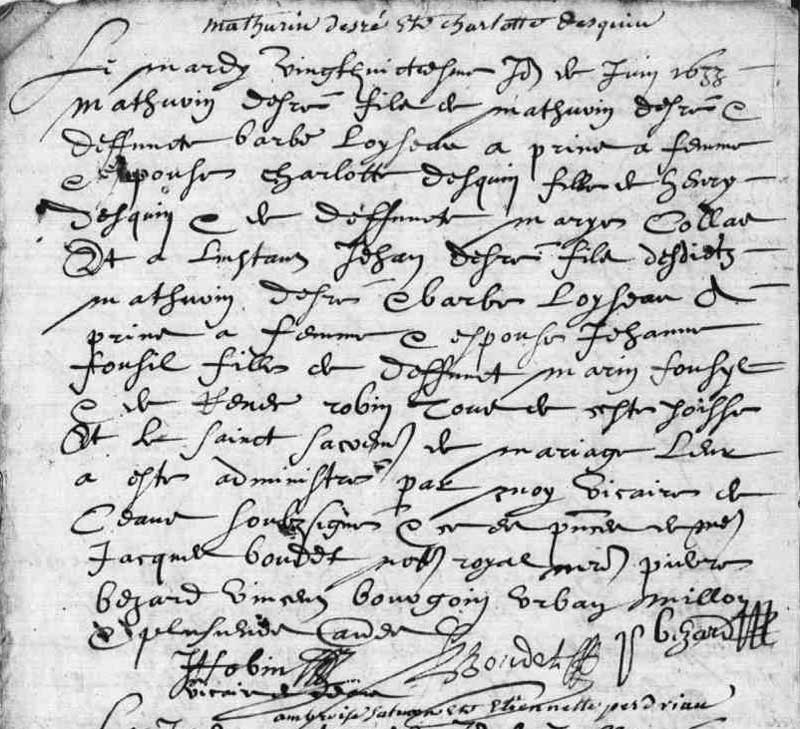 mathurin desré & charlotte desquin
Le mardy vingthuictiesme Jor de Juin 1633
mathurin desré filz de mathurin desré &
deffuncte barbe Loyseau a prins a femme
& espouse charlotte desquin fille de henry
desquin & de deffuncte marye Collas
Et a Linstant Jehan desré filz desdictz
mathurin desré & barbe Loyseau a
prins a femme & espouse Jehanne
fousil fille de deffunct marin fousyl
& de Renée robin tous de ceste poisse
Et le sainct sacremt de mariage Leur
a esté administré par moy vicaire de
soubzsigné & ce en pnce de
Jacques boudet nottre royal mre pierre
bezard vincent bourgoin urban millon
& plusieurs autres
Robin Boudet P bezard
vicaire de
ambroise & Estiennette perdriau